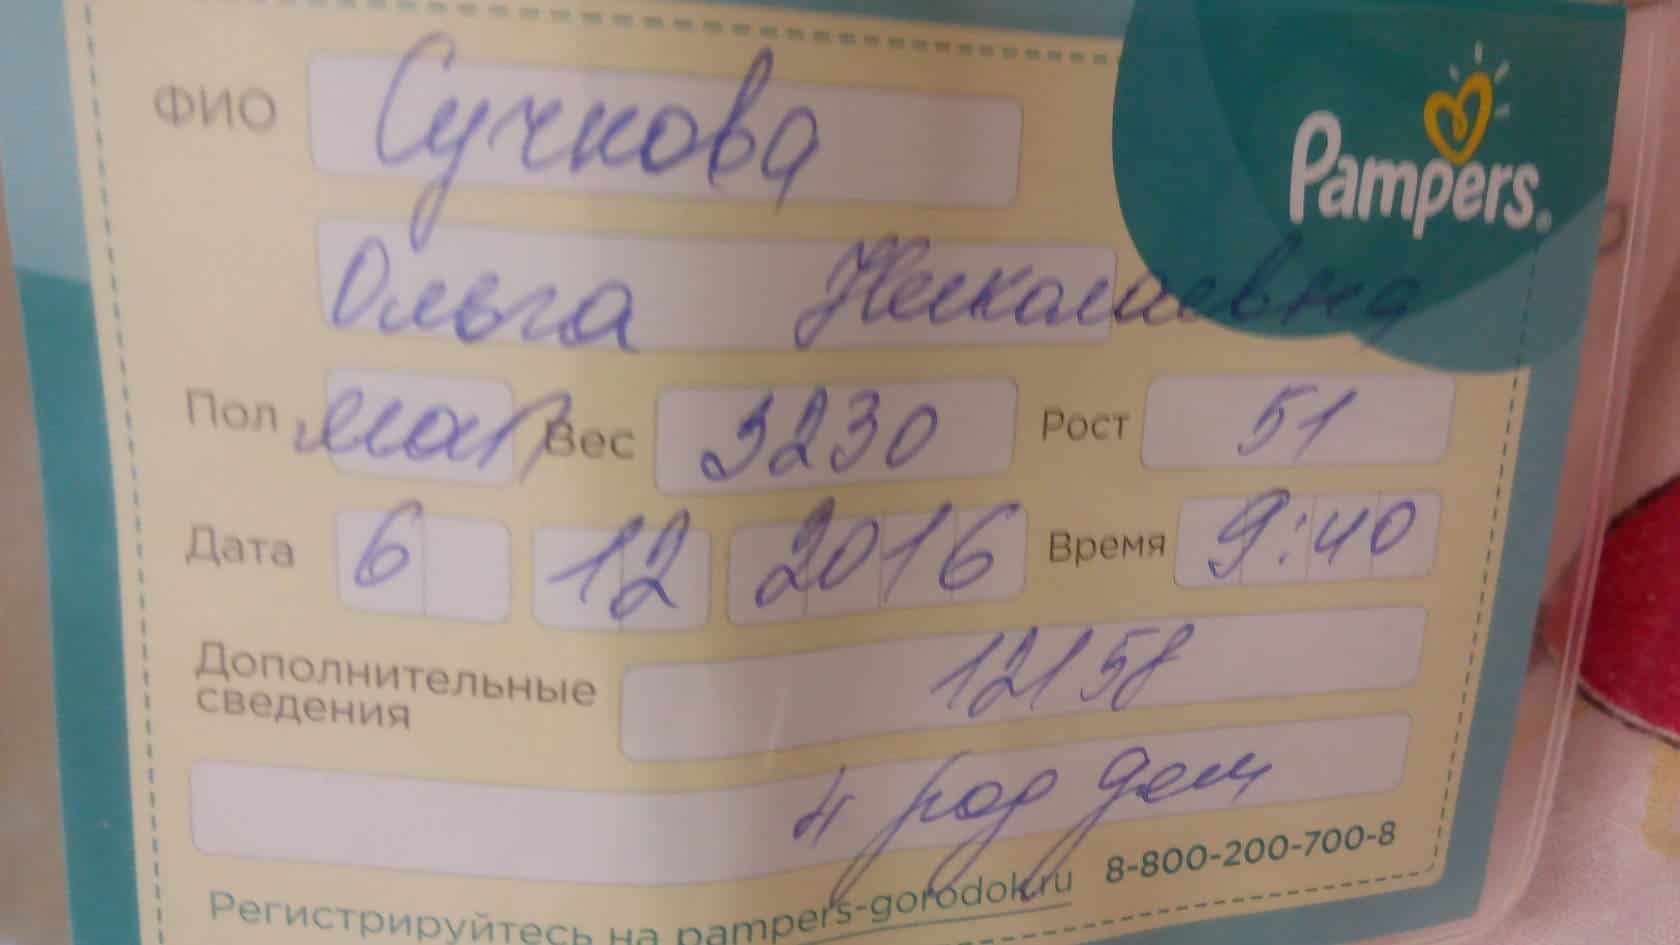 Pampers
ФИО Сучкова
Ольга Николаевна
Пол мал Вес 3230 Рост 51
Дата 6 12 2016 Время 9:40
Дополнительные 12158
сведения
4 род дом
8-800-200-700-8
Регистрируйтесь на pampers-gorodok.ru